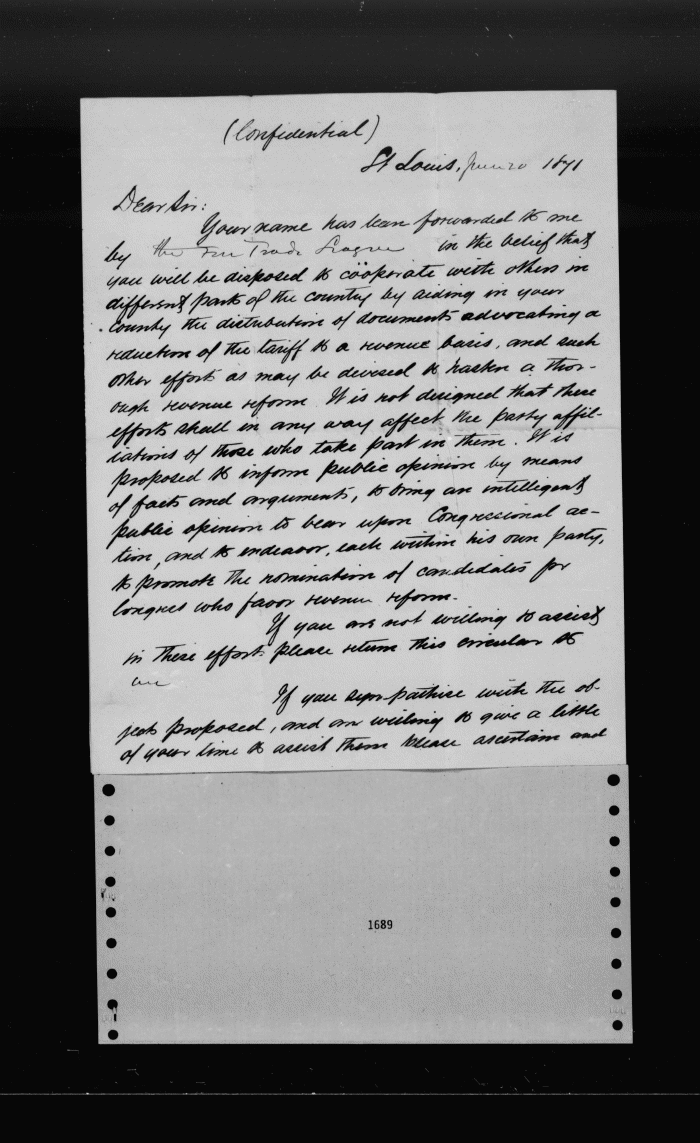 (Confidential)
St Louis, June 20 1871
Dear Sir:
Your name has been forwarded to me
by the Free Trade League in the belief that
you will be disposed to coöperate with others in
different parts of the country by aiding in your
county the distribution of documents advocating a
reduction of the tariff to a revenue basis, and such
other efforts as may be devised to hasten a thor-
ough revenue reform. It is not designed that these
efforts shall in any way affect the party affil-
iations of those who take part in them. It is
proposed to inform public opinion by means
of facts and arguments, to bring an intelligent
public opinion to bear upon Congressional ac-
tion, and to endeavor, each within his own party,
to promote the nomination of candidates for
Congress who favor revenue reform.
If you are not willing to assist
in these efforts please return this circular to
me
If you sympathise with the ob-
ject proposed, and are willing to give a little
of your time to assist them please ascertain and
1689